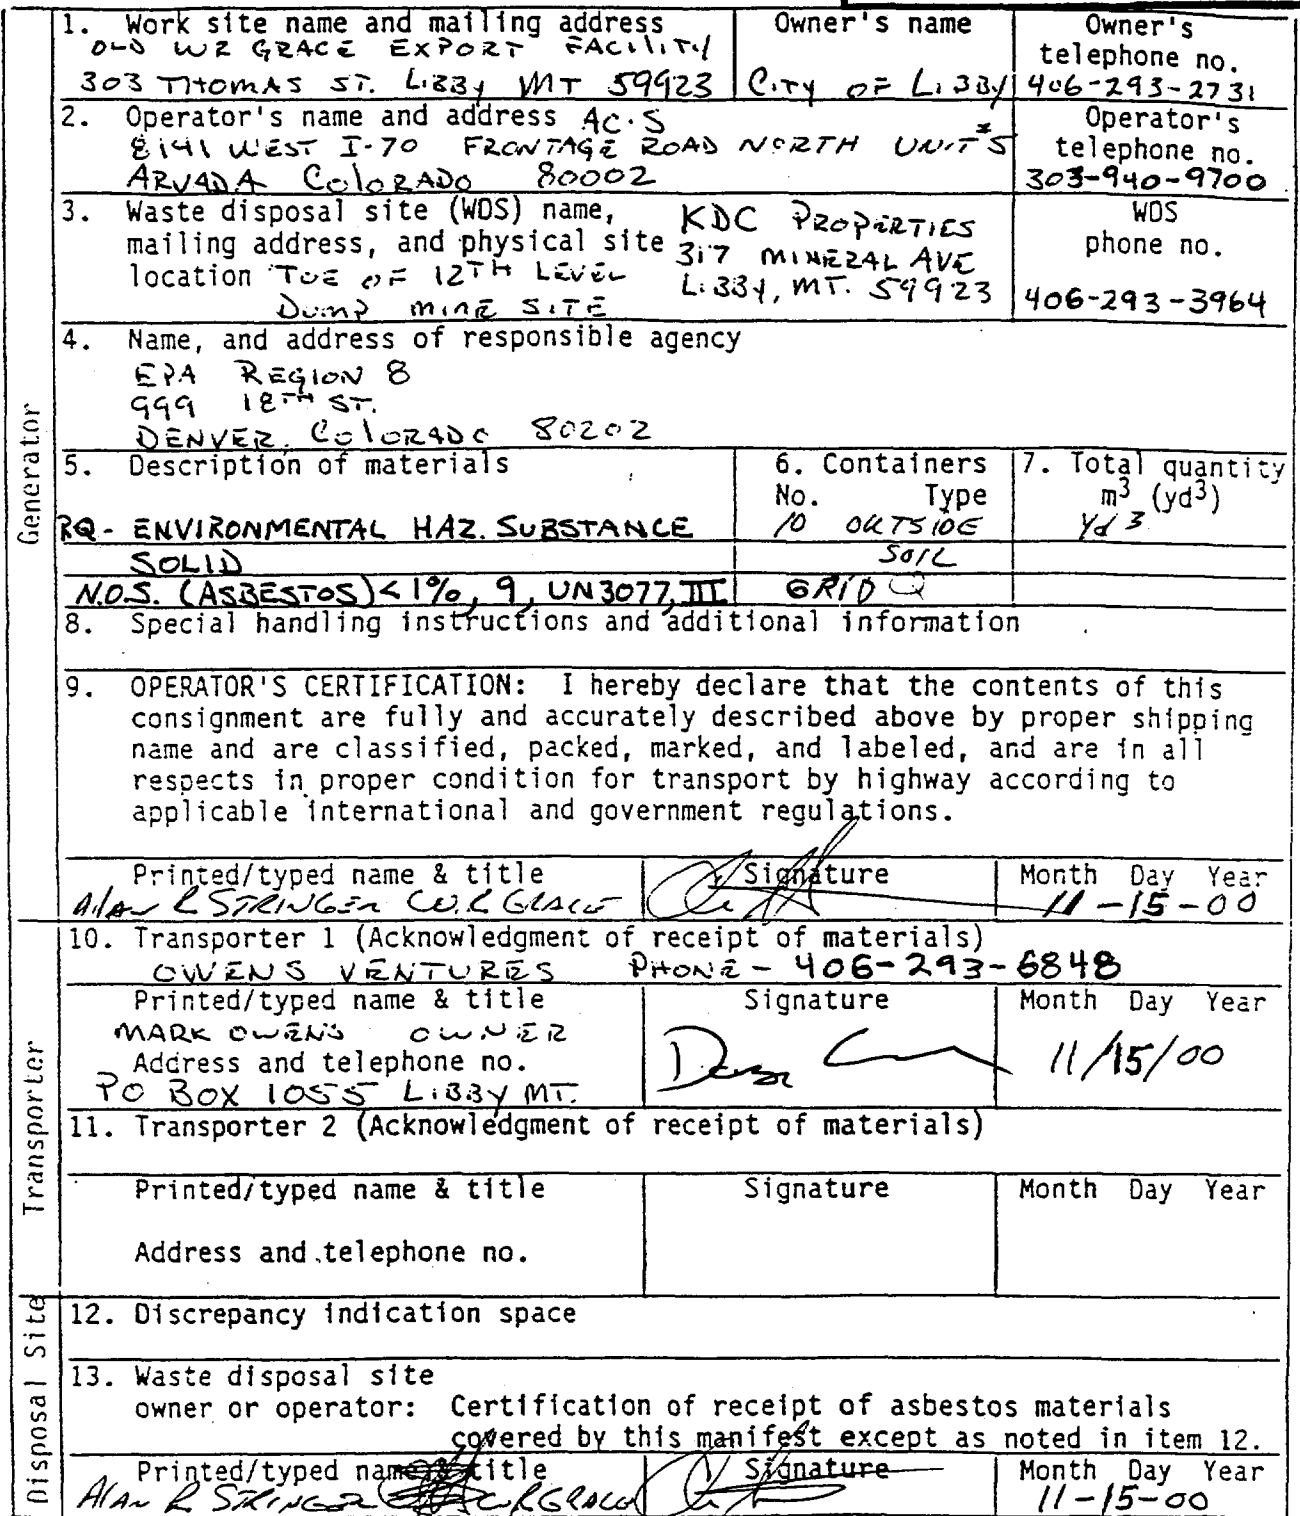 Generator
1. Work site name and mailing address
OLD WR GRACE EXPORT FACILITY
303 THOMAS ST. LIBBY MT 59923
Owner's name
CITY OF LIBBY
Owner's
telephone no.
406-293-2731
2. Operator's name and address AC·S
8141 WEST I-70 FRONTAGE ROAD NORTH UNIT #5
ARVADA COLORADO 80002
Operator's
telephone no.
303-940-9700
3. Waste disposal site (WDS) name,
mailing address, and physical site
location TOE OF 12TH LEVEL
DUMP MINE SITE
KDC PROPERTIES
317 MINERAL AVE
LIBBY, MT. 59923
WDS
phone no.
406-293-3964
4. Name, and address of responsible agency
EPA REGION 8
999 18TH ST.
DENVER, COLORADO 80202
5. Description of materials
RQ - ENVIRONMENTAL HAZ. SUBSTANCE
SOLID
N.O.S. (ASBESTOS) <1%, 9, UN3077, III
6. Containers
No. Type
10 OUTSIDE
SOIL
GRID Q
7. Total quantity
m3 (yd3)
Yd 3
8. Special handling instructions and additional information
9. OPERATOR'S CERTIFICATION: I hereby declare that the contents of this
consignment are fully and accurately described above by proper shipping
name and are classified, packed, marked, and labeled, and are in all
respects in proper condition for transport by highway according to
applicable international and government regulations.
Printed/typed name & title
Alan R STRINGER W.R GRACE
Signature
Month Day Year
11-15-00
Transporter
10. Transporter 1 (Acknowledgment of receipt of materials)
OWENS VENTURES PHONE - 406-293-6848
Printed/typed name & title
MARK OWENS OWNER
Address and telephone no.
PO BOX 1055 LIBBY MT.
Signature
Month Day Year
11/15/00
11. Transporter 2 (Acknowledgment of receipt of materials)
Printed/typed name & title
Address and telephone no.
Signature
Month Day Year
Disposal Site
12. Discrepancy indication space
13. Waste disposal site
owner or operator: Certification of receipt of asbestos materials
covered by this manifest except as noted in item 12.
Printed/typed name & title
Alan R STRINGER W.R GRACE
Signature
Month Day Year
11-15-00